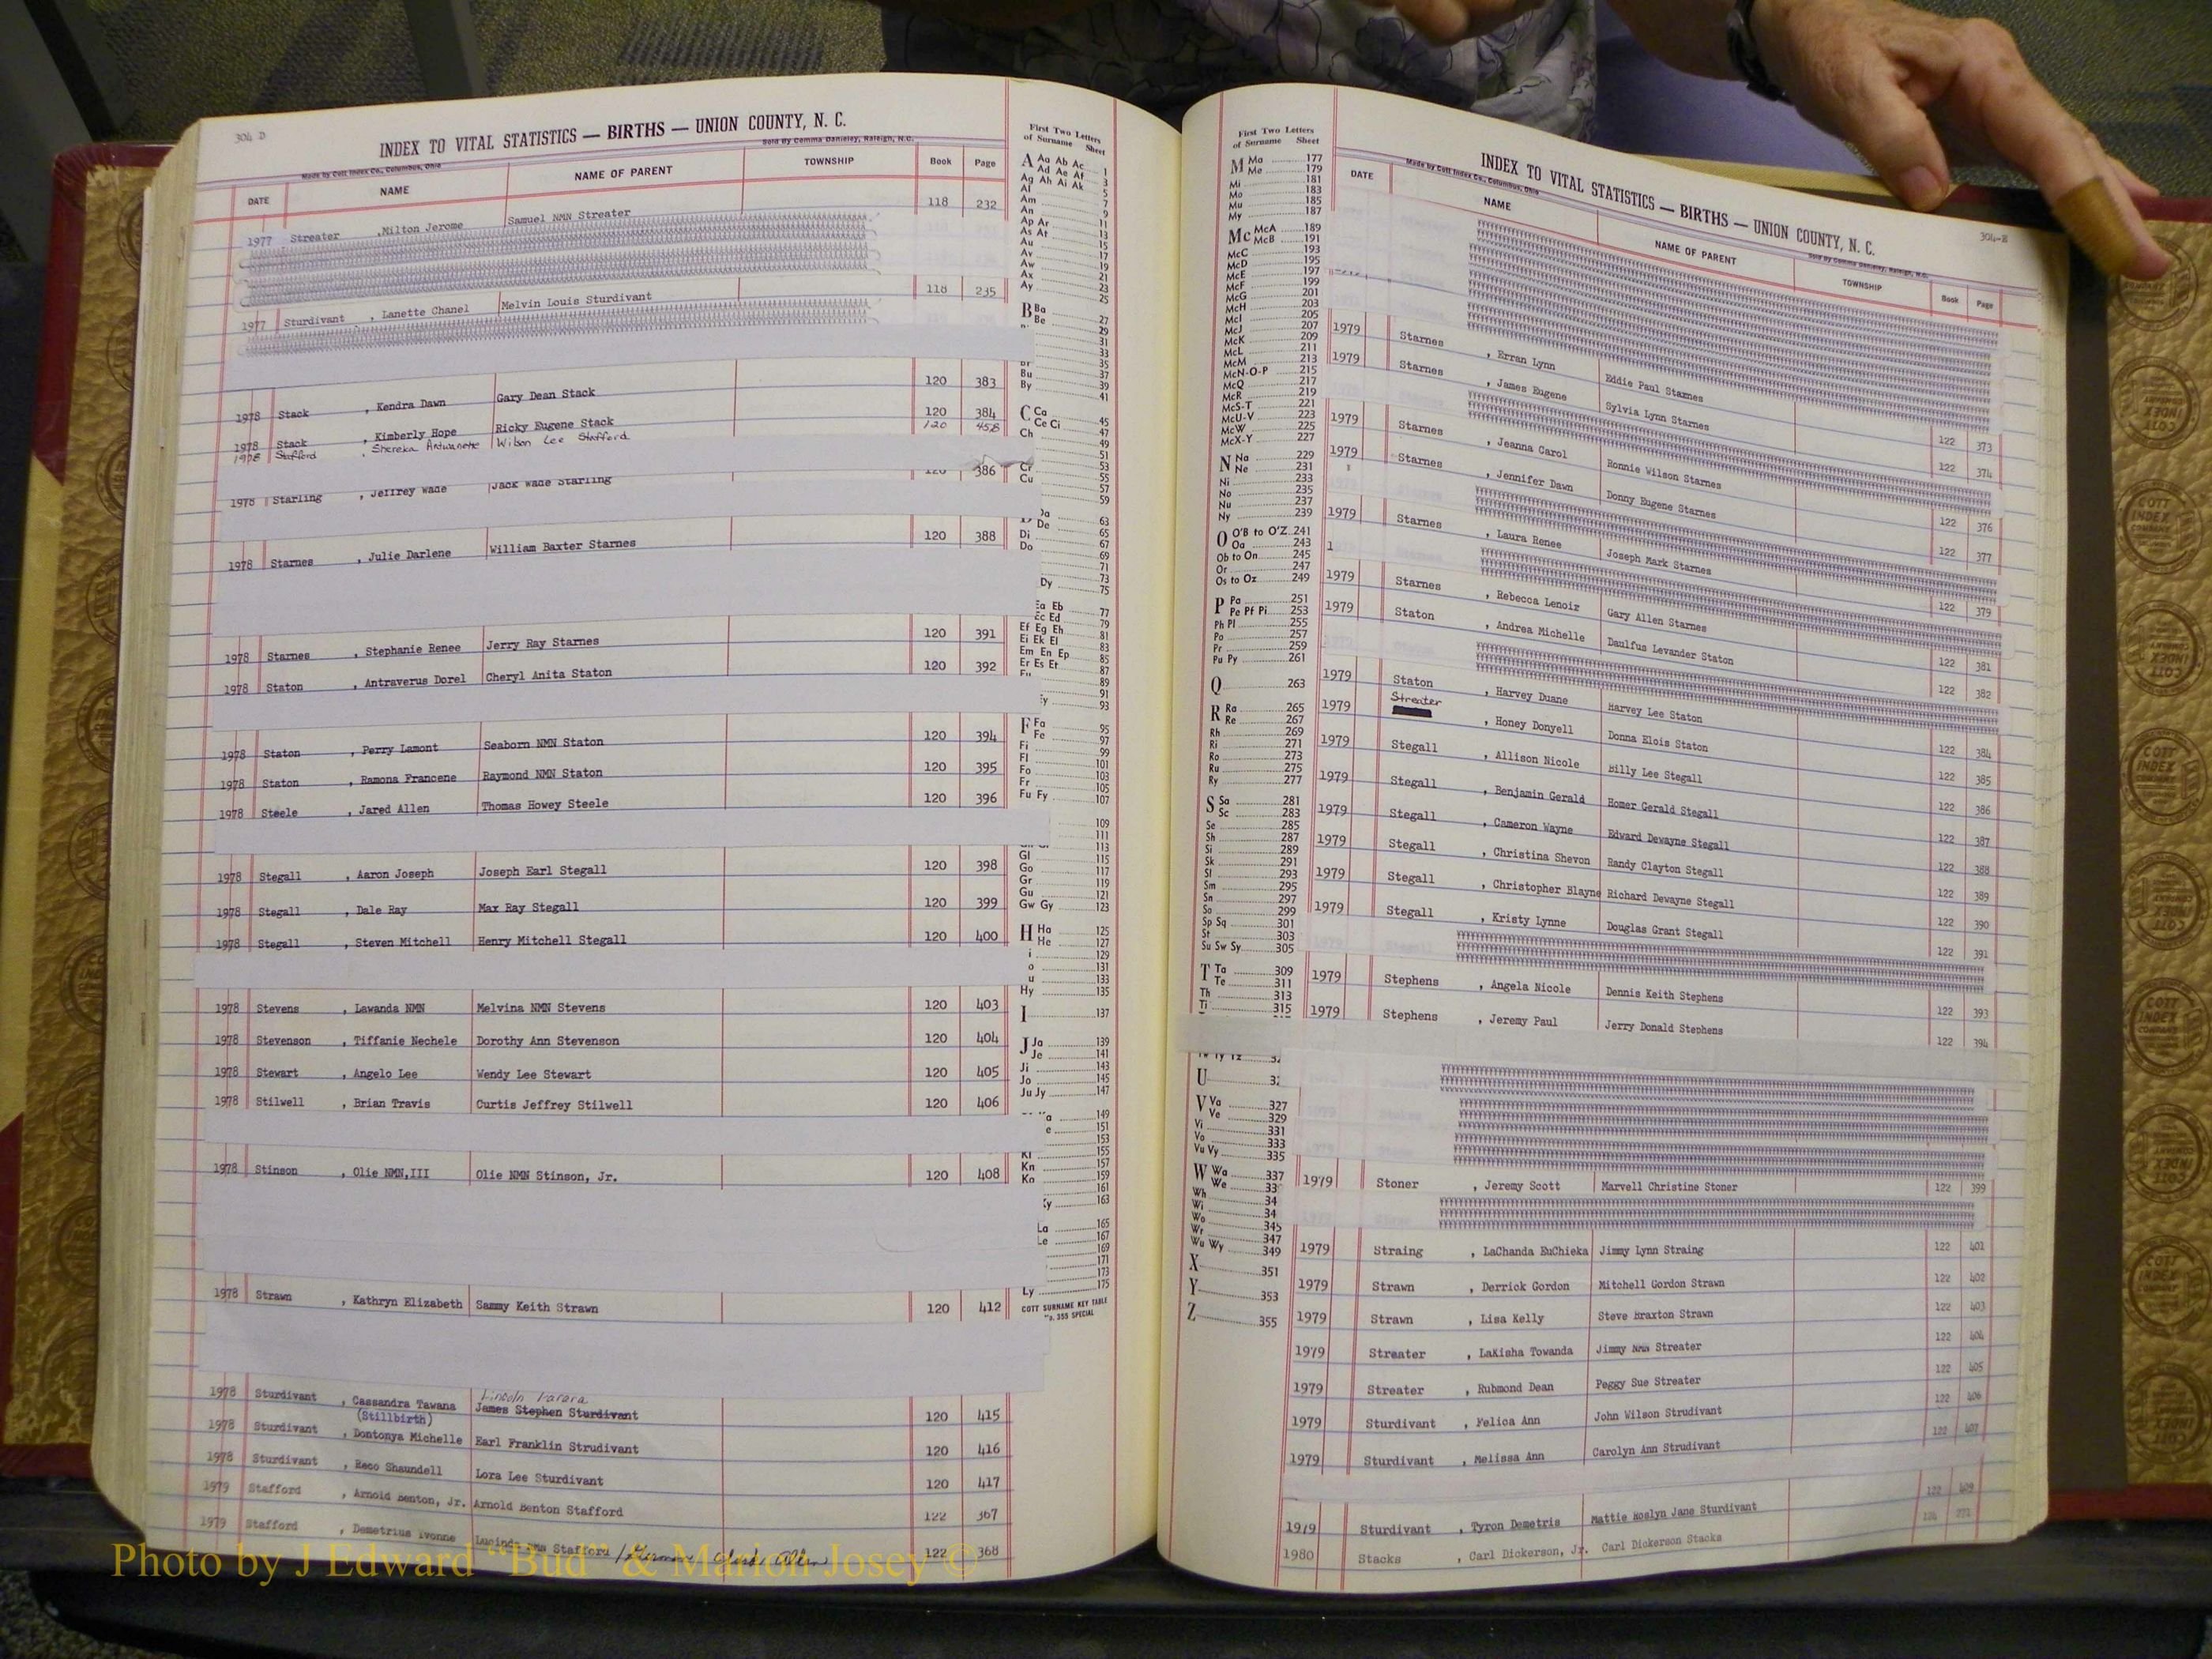 304 D
INDEX TO VITAL STATISTICS — BIRTHS — UNION COUNTY, N. C.
Made by Cott Index Co., Columbus, Ohio
Sold By Comma Danieley, Raleigh, N.C.
DATE NAME NAME OF PARENT TOWNSHIP Book Page
1977 Streater , Milton Jerome Samuel NMN Streater 118 232
1977 Sturdivant , Lanette Chanel Melvin Louis Sturdivant 118 235
1978 Stack , Kendra Dawn Gary Dean Stack 120 383
1978 Stack , Kimberly Hope Ricky Eugene Stack 120 384
1978 Stafford , Shereka Wilson Lee Stafford 120 458
1978 Starling , Jeffrey Wade Jack Wade Starling 120 386
1978 Starnes , Julie Darlene William Baxter Starnes 120 388
1978 Starnes , Stephanie Renee Jerry Ray Starnes 120 391
1978 Staton , Antraverus Dorel Cheryl Anita Staton 120 392
1978 Staton , Perry Lamont Seaborn NMN Staton 120 394
1978 Staton , Ramona Francene Raymond NMN Staton 120 395
1978 Steele , Jared Allen Thomas Howey Steele 120 396
1978 Stegall , Aaron Joseph Joseph Earl Stegall 120 398
1978 Stegall , Dale Ray Max Ray Stegall 120 399
1978 Stegall , Steven Mitchell Henry Mitchell Stegall 120 400
1978 Stevens , Lawanda NMN Melvina NMN Stevens 120 403
1978 Stevenson , Tiffanie Nechele Dorothy Ann Stevenson 120 404
1978 Stewart , Angelo Lee Wendy Lee Stewart 120 405
1978 Stilwell , Brian Travis Curtis Jeffrey Stilwell 120 406
1978 Stinson , Olie NMN,III Olie NMN Stinson, Jr. 120 408
1978 Strawn , Kathryn Elizabeth Sammy Keith Strawn 120 412
Lincoln
1978 Sturdivant , Cassandra Tawana James Stephen Sturdivant 120 415
(Stillbirth)
1978 Sturdivant , Dontonya Michelle Earl Franklin Strudivant 120 416
1978 Sturdivant , Reco Shaundell Lora Lee Sturdivant 120 417
1979 Stafford , Arnold Benton, Jr. Arnold Benton Stafford 122 367
1979 Stafford , Demetrius Ivonne Lucinda Stafford 122 368
First Two Letters
of Surname Sheet
A Aa Ab Ac 1
Ad Ae Af 3
Ag Ah Ai Ak 5
Al 7
Am 9
An 11
Ap Ar 13
As At 15
Au 17
Av 19
Aw 21
Ax 23
Ay 25
B Ba 27
Be 29
31
33
35
Bu 37
By 39
41
C Ca 45
Ce Ci 47
Ch 49
51
Cr 53
Cu 55
57
59
63
De 65
Di 67
Do 69
71
73
Dy 75
Ea Eb 77
Ec Ed 79
Ef Eg Eh 81
Ei Ek El 83
Em En Ep 85
Er Es Et 87
89
91
93
F Fa 95
Fe 97
Fi 99
Fl 101
Fo 103
Fr 105
Fu Fy 107
109
111
113
Gl 115
Go 117
Gr 119
Gu 121
Gw Gy 123
H Ha 125
He 127
i 129
o 131
u 133
Hy 135
I 137
J Ja 139
Je 141
Ji 143
Jo 145
Ju Jy 147
149
151
153
155
Kn 157
Ko 159
161
163
La 165
Le 167
169
171
173
Ly 175
COTT SURNAME KEY TABLE
No. 355 SPECIAL
First Two Letters
of Surname Sheet
M Ma 177
Me 179
Mi 181
Mo 183
Mu 185
My 187
Mc McA 189
McB 191
McC 193
McD 195
McE 197
McF 199
McG 201
McH 203
McI 205
McJ 207
McK 209
McL 211
McM 213
McN-O-P 215
McQ 217
McR 219
McS-T 221
McU-V 223
McW 225
McX-Y 227
N Na 229
Ne 231
Ni 233
No 235
Nu 237
Ny 239
O O'B to O'Z 241
Oa 243
Ob to On 245
Or 247
Os to Oz 249
P Pa 251
Pe Pf Pi 253
Ph Pl 255
Po 257
Pr 259
Pu Py 261
Q 263
R Ra 265
Re 267
Rh 269
Ri 271
Ro 273
Ru 275
Ry 277
S Sa 281
Sc 283
Se 285
Sh 287
Si 289
Sk 291
Sl 293
Sm 295
Sn 297
So 299
Sp Sq 301
St 303
Su Sw Sy 305
T Ta 309
Te 311
Th 313
Ti 315
U
V Va 327
Ve 329
Vi 331
Vo 333
Vu Vy 335
W Wa 337
We
Wh
Wi
Wo 345
Wr 347
Wu Wy 349
X 351
Y 353
Z 355
304-E
INDEX TO VITAL STATISTICS — BIRTHS — UNION COUNTY, N. C.
Made by Cott Index Co., Columbus, Ohio
Sold By Comma Danieley, Raleigh, N.C.
DATE NAME NAME OF PARENT TOWNSHIP Book Page
1979 Starnes , Erran Lynn Eddie Paul Starnes 122 373
1979 Starnes , James Eugene Sylvia Lynn Starnes 122 374
1979 Starnes , Jeanna Carol Ronnie Wilson Starnes 122 376
1979 Starnes , Jennifer Dawn Donny Eugene Starnes 122 377
1979 Starnes , Laura Renee Joseph Mark Starnes 122 379
1979 Starnes , Rebecca Lenoir Gary Allen Starnes 122 381
1979 Staton , Andrea Michelle Daulfus Levander Staton 122 382
1979 Staton , Harvey Duane Harvey Lee Staton 122 384
1979 Streater , Honey Donyell Donna Elois Staton 122 385
1979 Stegall , Allison Nicole Billy Lee Stegall 122 386
1979 Stegall , Benjamin Gerald Homer Gerald Stegall 122 387
1979 Stegall , Cameron Wayne Edward Dewayne Stegall 122 388
1979 Stegall , Christina Shevon Randy Clayton Stegall 122 389
1979 Stegall , Christopher Blayne Richard Dewayne Stegall 122 390
1979 Stegall , Kristy Lynne Douglas Grant Stegall 122 391
1979 Stephens , Angela Nicole Dennis Keith Stephens 122 393
1979 Stephens , Jeremy Paul Jerry Donald Stephens 122 394
1979 Stoner , Jeremy Scott Marvell Christine Stoner 122 399
1979 Straing , LaChanda EuChieka Jimmy Lynn Straing 122 401
1979 Strawn , Derrick Gordon Mitchell Gordon Strawn 122 402
1979 Strawn , Lisa Kelly Steve Braxton Strawn 122 403
1979 Streater , LaKisha Towanda Jimmy NMN Streater 122 404
1979 Streater , Rubmond Dean Peggy Sue Streater 122 405
1979 Sturdivant , Felica Ann John Wilson Strudivant 122 406
1979 Sturdivant , Melissa Ann Carolyn Ann Strudivant 122 407
1979 Sturdivant , Tyron Demetris Mattie Roslyn Jane Sturdivant 122 409
1980 Stacks , Carl Dickerson, Jr. Carl Dickerson Stacks
COTT INDEX COMPANY
Photo by J Edward “Bud” & Marion Josey ©